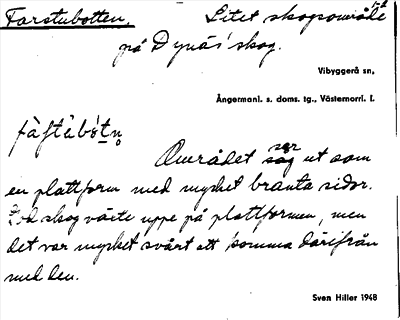 Farstubotten. Litet skogsområde
på Dynäs' skog.
Vibyggerå sn,
Ångermanl. s. doms. tg., Västernorrl. l.
Området ser ut som
en plattform med mycket branta sidor.
skog växte uppe på plattformen, men
det var mycket svårt att komma därifrån
med den.
Sven Hiller 1948